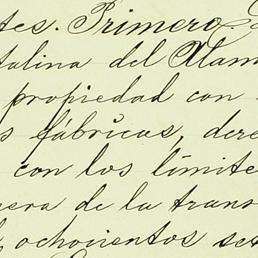 tes. Primero. 
talina del Alam
propiedad con
s fábricas, dere
con los límite
era de la trans
ochocientos set